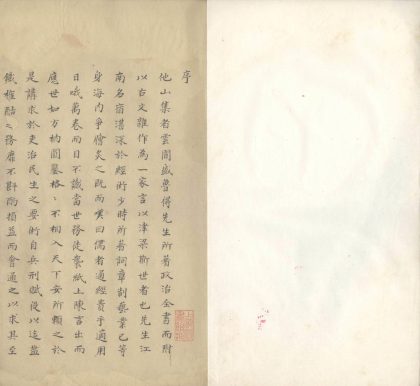 序
他山集者雲間盛魯得先生所著政治全書而附
以古文雜作為一家言以津梁斯世者也先生江
南名宿湛深於經術少時所著詞章制藝業已等
身海內爭膾炙之既而嘆曰儒者通經貴乎適用
日哦萬卷而目不識當世務徒襲紙上陳言出而
應世如方枘圓鑿格〻不相入天下安所賴之於
是講求於吏治民生之要術自兵刑賦役以迄鹽
鐵榷酤之務靡不斟酌損益而會通之以求其至